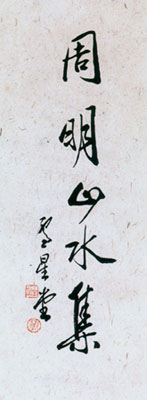 周明山水集
星堂